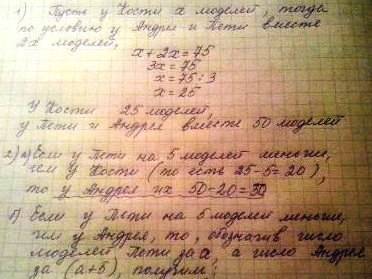 1) Пусть у Кости х моделей, тогда
по условию у Андрея и Пети вместе
2х моделей,
х + 2х = 75
3х = 75
х = 75 : 3
х = 25
У Кости 25 моделей,
у Пети и Андрея вместе 50 моделей
2) а) Если у Пети на 5 моделей меньше,
чем у Кости (то есть 25-5=20),
то у Андрея их 50-20=30
б) Если у Пети на 5 моделей меньше,
чем у Андрея, то, обозначив число
моделей Пети за а, а число Андрея
за (а+5), получим: